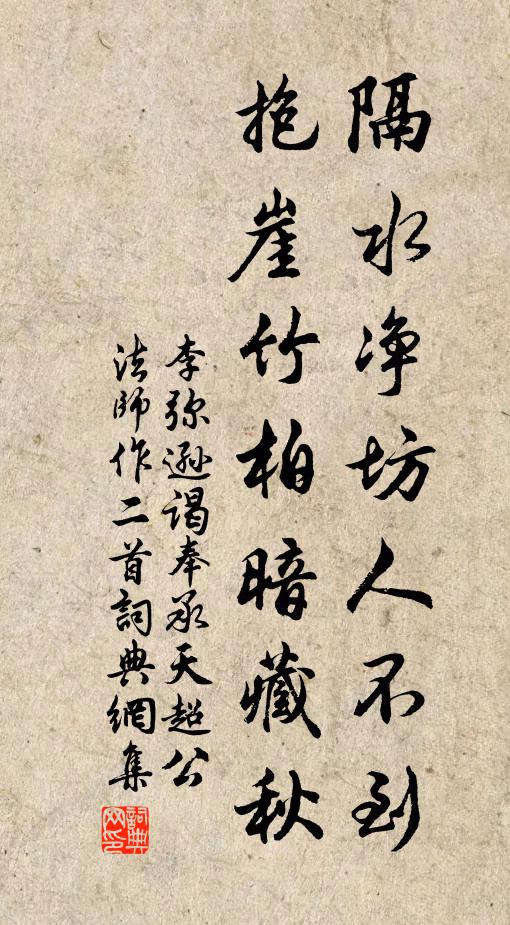 隔水净坊人不到
抱崖竹柏暗藏秋
李弥逊谒奉承天超公
法師作二首詞典網集
詞典網印